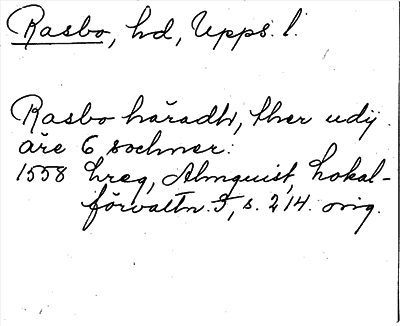 Rasbo, hd, Upps. l.
Rasbo häradh, ther udij
äre 6 sochner.
1558 Lreg, Almquist, Lokal-
förvaltn. I, s. 214. orig.